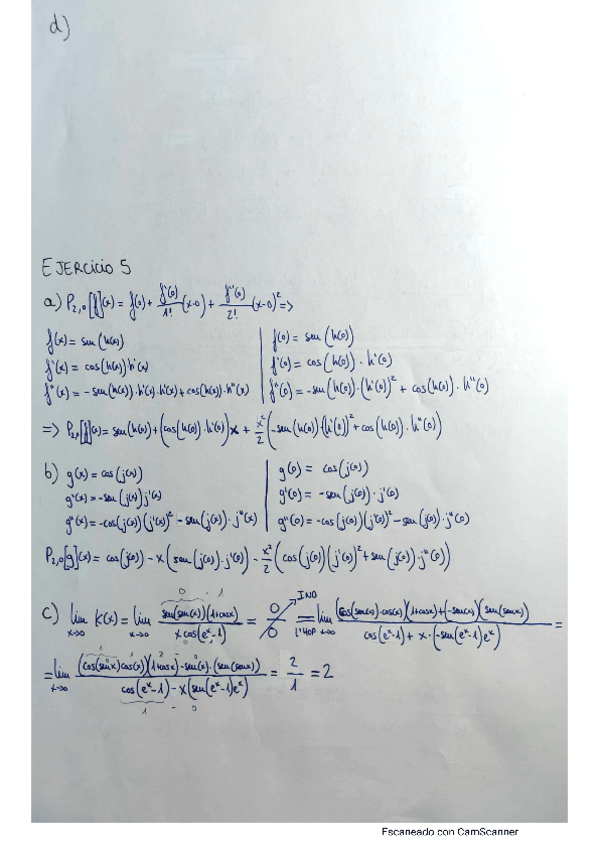 d)
EJERCICIO 5
a) P₂,₀[f](x) = f(0) + f'(0)/1! (x-0) + f''(0)/2! (x-0)² =>
f(x) = sen(h(x)) | f(0) = sen(h(0))
f'(x) = cos(h(x))·h'(x) | f'(0) = cos(h(0))·h'(0)
f''(x) = -sen(h(x))·h'(x)·h'(x) + cos(h(x))·h''(x) | f''(0) = -sen(h(0))·(h'(0))² + cos(h(0))·h''(0)
=> P₂,₀[f](x) = sen(h(0)) + (cos(h(0))·h'(0))x + x²/2 (-sen(h(0))·(h'(0))² + cos(h(0))·h''(0))
b) g(x) = cos(j(x)) | g(0) = cos(j(0))
g'(x) = -sen(j(x))j'(x) | g'(0) = -sen(j(0))·j'(0)
g''(x) = -cos(j(x))(j'(x))² - sen(j(x))·j''(x) | g''(0) = -cos(j(0))(j'(0))² - sen(j(0))·j''(0)
P₂,₀[g](x) = cos(j(0)) - x(sen(j(0))·j'(0)) - x²/2 (cos(j(0))(j'(0))² + sen(j(0))·j''(0))
0 · 1
c) lim x→0 K(x) = lim x→0 sen(sen(x))(1+cosx) / x cos(eˣ-1) = 0/0 IND = L'HOP lim x→0 (cos(sen(x))·cos(x))(1+cosx) + (-sen(x))(sen(senx)) / cos(eˣ-1) + x·(-sen(eˣ-1)eˣ) =
= lim x→0 (cos(senx)cos(x))(1+cosx) - sen(x)·(sen(senx)) / cos(eˣ-1) - x(sen(eˣ-1)eˣ) = 2/1 = 2
1 - 0
Escaneado con CamScanner